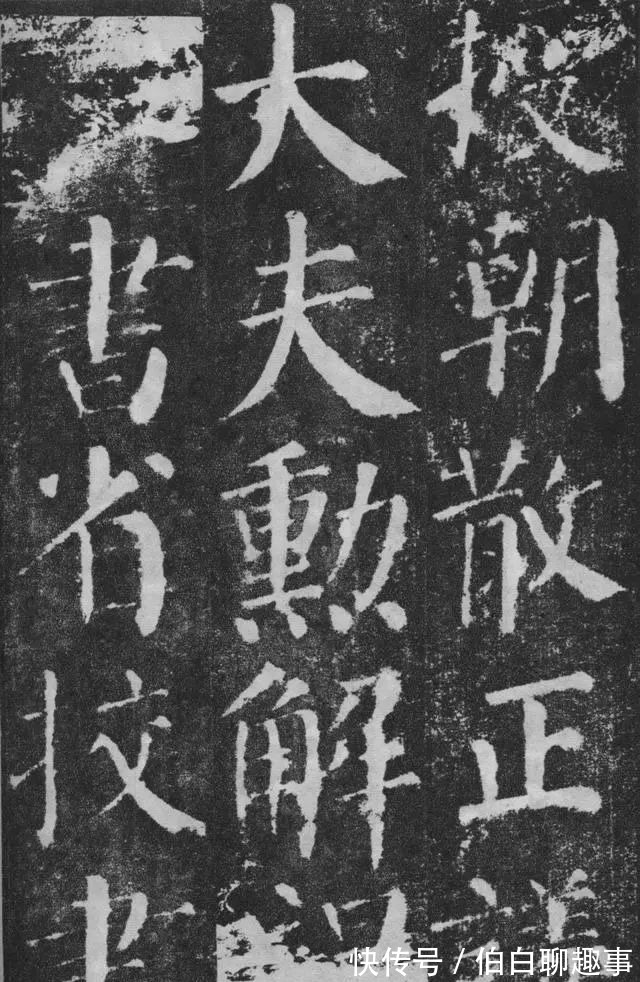 授朝散正議
大夫勳解
書省挍書
快传号 / 伯白聊趣事